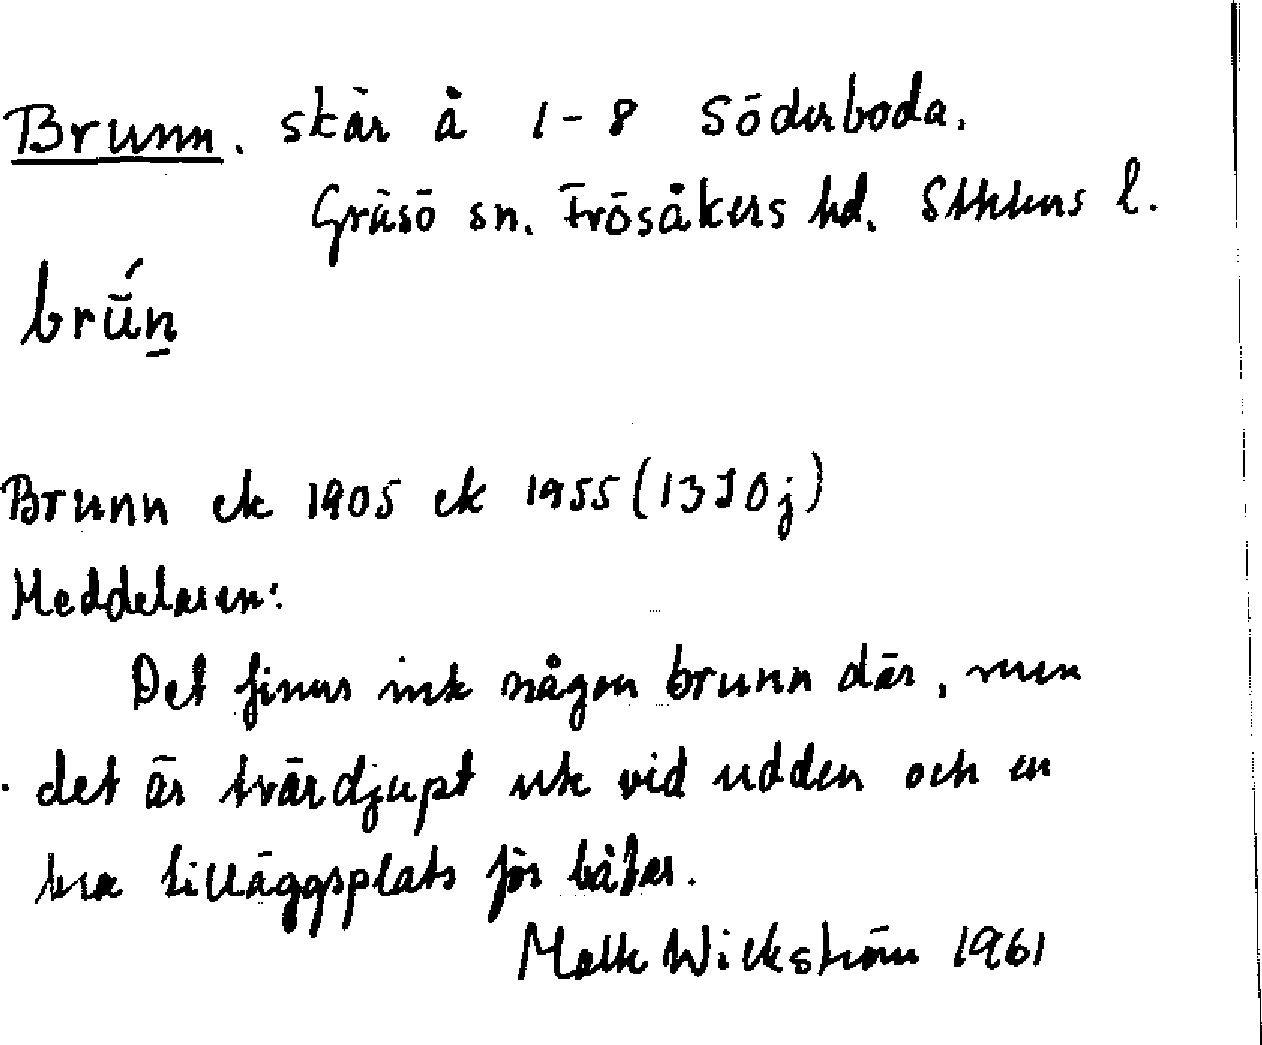 Brunn. skär å 1-8 Söderboda.
Gräsö sn. Frösåkers hd. Sthlms l.
brǘn̲
Brunn ek 1905 ek 1955 (13I0j)
Meddelaren:
Det finns inte någon brunn där, men
det är tvärdjupt ute vid udden och en
bra tilläggsplats för båtar.
Malte Wickström 1961